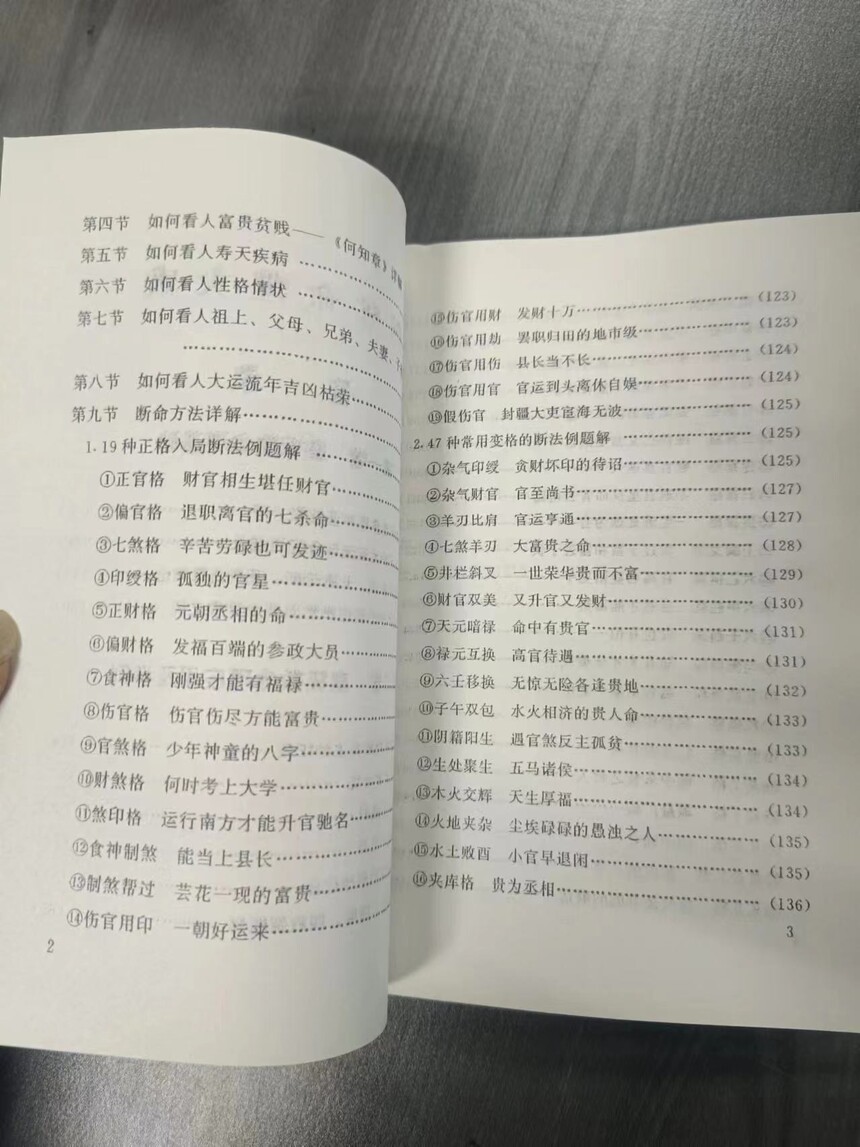 第四节 如何看人富贵贫贱——《何知章》详
第五节 如何看人寿夭疾病……………
第六节 如何看人性格情状……………
第七节 如何看人祖上、父母、兄弟、夫妻、
……………………………
第八节 如何看人大运流年吉凶枯荣……
第九节 断命方法详解……………………
1.19种正格入局断法例题解…………
①正官格 财官相生堪任财官…………
②偏官格 退职离官的七杀命…………
③七煞格 辛苦劳碌也可发迹…………
④印绶格 孤独的官星…………………
⑤正财格 元朝丞相的命………………
⑥偏财格 发福百端的参政大员………
⑦食神格 刚强才能有福禄……………
⑧伤官格 伤官伤尽方能富贵…………
⑨官煞格 少年神童的八字……………
⑩财煞格 何时考上大学………………
⑪煞印格 运行南方才能升官驰名……
⑫食神制煞 能当上县长………………
⑬制煞帮过 芸花一现的富贵…………
⑭伤官用印 一朝好运来………………
2
⑮伤官用财 发财十万……………………(123)
⑯伤官用劫 罢职归田的地市级…………(123)
⑰伤官用伤 县长当不长…………………(124)
⑱伤官用官 官运到头离休自娱…………(124)
⑲假伤官 封疆大吏宦海无波……………(125)
2.47种常用变格的断法例题解……………(125)
①杂气印绶 贪财坏印的待诏……………(125)
②杂气财官 官至尚书……………………(127)
③羊刃比肩 官运亨通……………………(127)
④七煞羊刃 大富贵之命…………………(128)
⑤井栏斜叉 一世荣华贵而不富…………(129)
⑥财官双美 又升官又发财………………(130)
⑦天元暗禄 命中有贵官…………………(131)
⑧禄元互换 高官待遇……………………(131)
⑨六壬移换 无惊无险各逢贵地…………(132)
⑩子午双包 水火相济的贵人命…………(133)
⑪阴籍阳生 遇官煞反主孤贫……………(133)
⑫生处聚生 五马诸侯……………………(134)
⑬木火交辉 天生厚福……………………(134)
⑭火地夹杂 尘埃碌碌的愚浊之人………(135)
⑮水土败酉 小官早退闲…………………(135)
⑯夹库格 贵为丞相………………………(136)
3